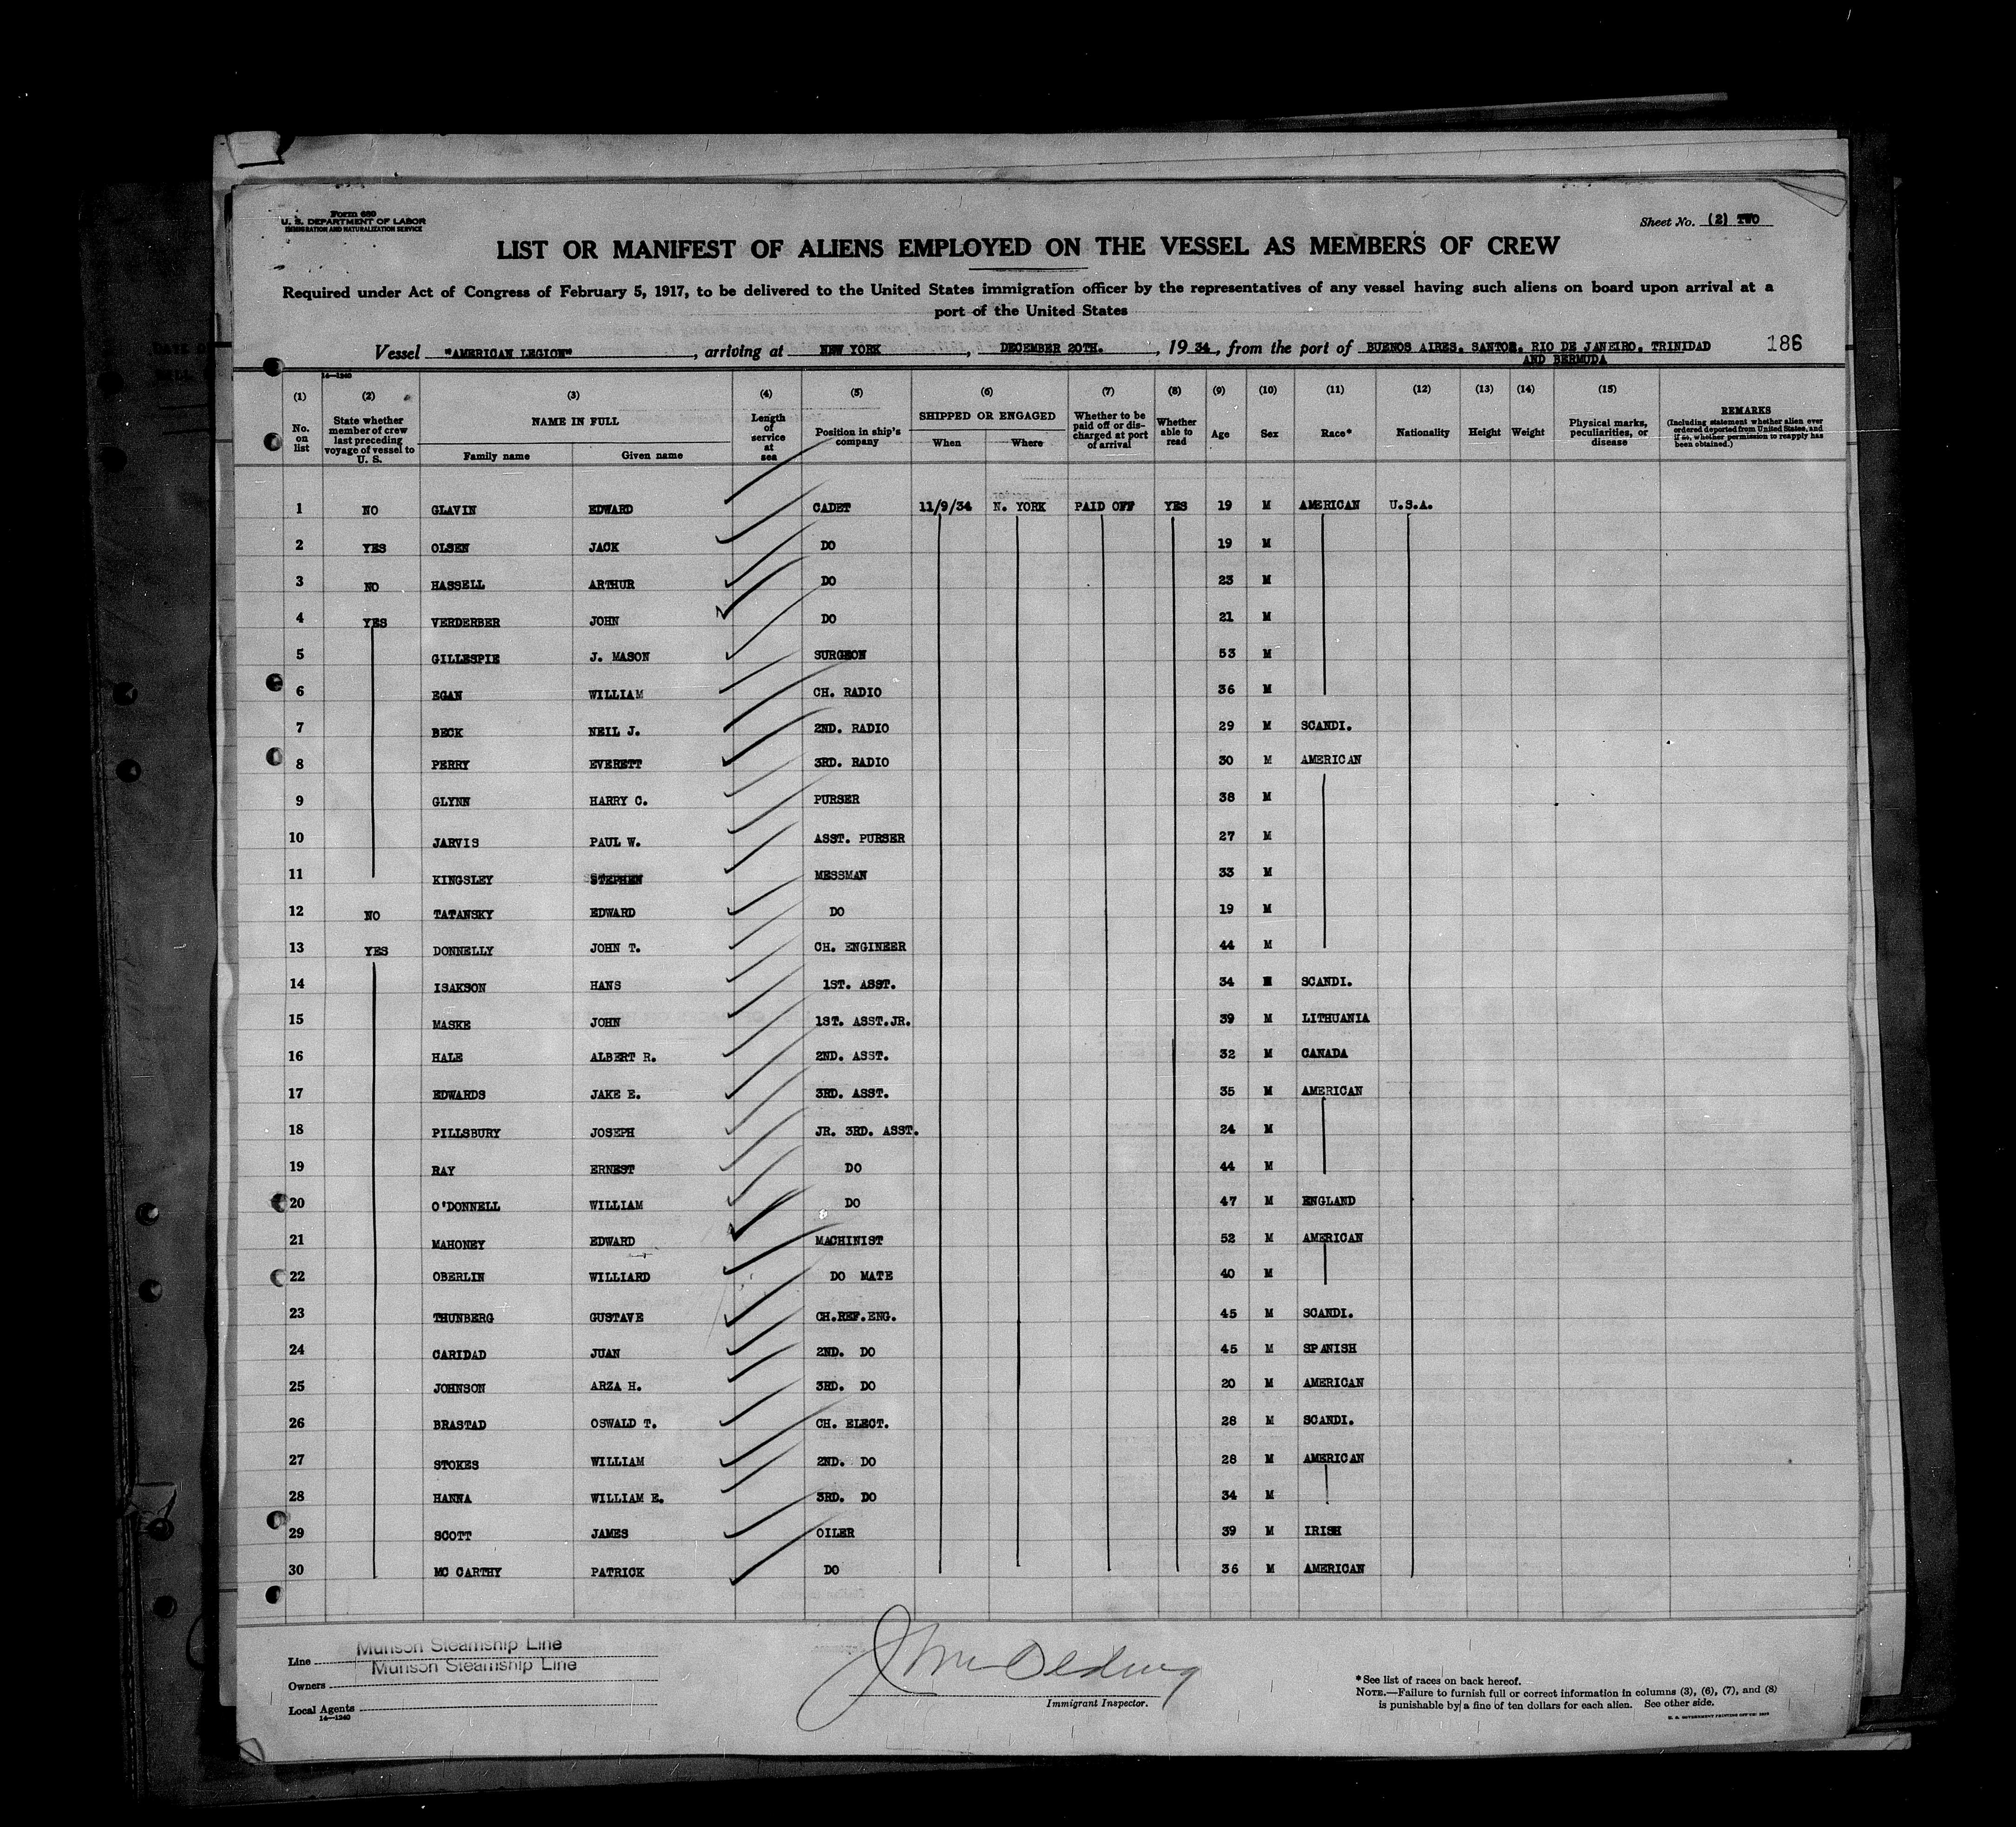 Form 680
U. S. DEPARTMENT OF LABOR
IMMIGRATION AND NATURALIZATION SERVICE
Sheet No. (2) TWO
LIST OR MANIFEST OF ALIENS EMPLOYED ON THE VESSEL AS MEMBERS OF CREW
Required under Act of Congress of February 5, 1917, to be delivered to the United States immigration officer by the representatives of any vessel having such aliens on board upon arrival at a
port of the United States
Vessel "AMERICAN LEGION", arriving at NEW YORK, DECEMBER 20TH., 19 34, from the port of BUENOS AIRES. SANTOS. RIO DE JANEIRO. TRINIDAD 186
AND BERMUDA
14—1240
(1) (2) (3) (4) (5) (6) (7) (8) (9) (10) (11) (12) (13) (14) (15)
No. on list
State whether member of crew last preceding voyage of vessel to U. S.
NAME IN FULL
Family name Given name
Length of service at sea
Position in ship's company
SHIPPED OR ENGAGED
When Where
Whether to be paid off or discharged at port of arrival
Whether able to read
Age
Sex
Race*
Nationality
Height
Weight
Physical marks, peculiarities, or disease
REMARKS
(Including statement whether alien ever ordered deported from United States, and if so, whether permission to reapply has been obtained.)
1 NO GLAVIN EDWARD CADET 11/9/34 N. YORK PAID OFF YES 19 M AMERICAN U.S.A.
2 YES OLSEN JACK DO 19 M
3 NO HASSELL ARTHUR DO 23 M
4 YES VERDERBER JOHN DO 21 M
5 GILLESPIE J. MASON SURGEON 53 M
6 EGAN WILLIAM CH. RADIO 36 M
7 BECK NEIL J. 2ND. RADIO 29 M SCANDI.
8 PERRY EVERETT 3RD. RADIO 30 M AMERICAN
9 GLYNN HARRY C. PURSER 38 M
10 JARVIS PAUL W. ASST. PURSER 27 M
11 KINGSLEY STEPHEN MESSMAN 33 M
12 NO TATANSKY EDWARD DO 19 M
13 YES DONNELLY JOHN T. CH. ENGINEER 44 M
14 ISAKSON HANS 1ST. ASST. 34 M SCANDI.
15 MASKE JOHN 1ST. ASST.JR. 39 M LITHUANIA
16 HALE ALBERT R. 2ND. ASST. 32 M CANADA
17 EDWARDS JAKE E. 3RD. ASST. 35 M AMERICAN
18 PILLSBURY JOSEPH JR. 3RD. ASST. 24 M
19 RAY ERNEST DO 44 M
20 O'DONNELL WILLIAM DO 47 M ENGLAND
21 MAHONEY EDWARD MACHINIST 52 M AMERICAN
22 OBERLIN WILLIARD DO MATE 40 M
23 THUNBERG GUSTAVE CH.REF.ENG. 45 M SCANDI.
24 CARIDAD JUAN 2ND. DO 45 M SPANISH
25 JOHNSON ARZA H. 3RD. DO 20 M AMERICAN
26 BRASTAD OSWALD T. CH. ELECT. 28 M SCANDI.
27 STOKES WILLIAM 2ND. DO 28 M AMERICAN
28 HANNA WILLIAM E. 3RD. DO 34 M
29 SCOTT JAMES OILER 39 M IRISH
30 MC CARTHY PATRICK DO 36 M AMERICAN
Line Munson Steamship Line
Owners Munson Steamship Line
Local Agents
14—1240
Immigrant Inspector.
*See list of races on back hereof.
NOTE.—Failure to furnish full or correct information in columns (3), (6), (7), and (8)
is punishable by a fine of ten dollars for each alien. See other side.